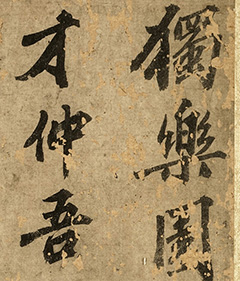 獨樂園
才仲吾